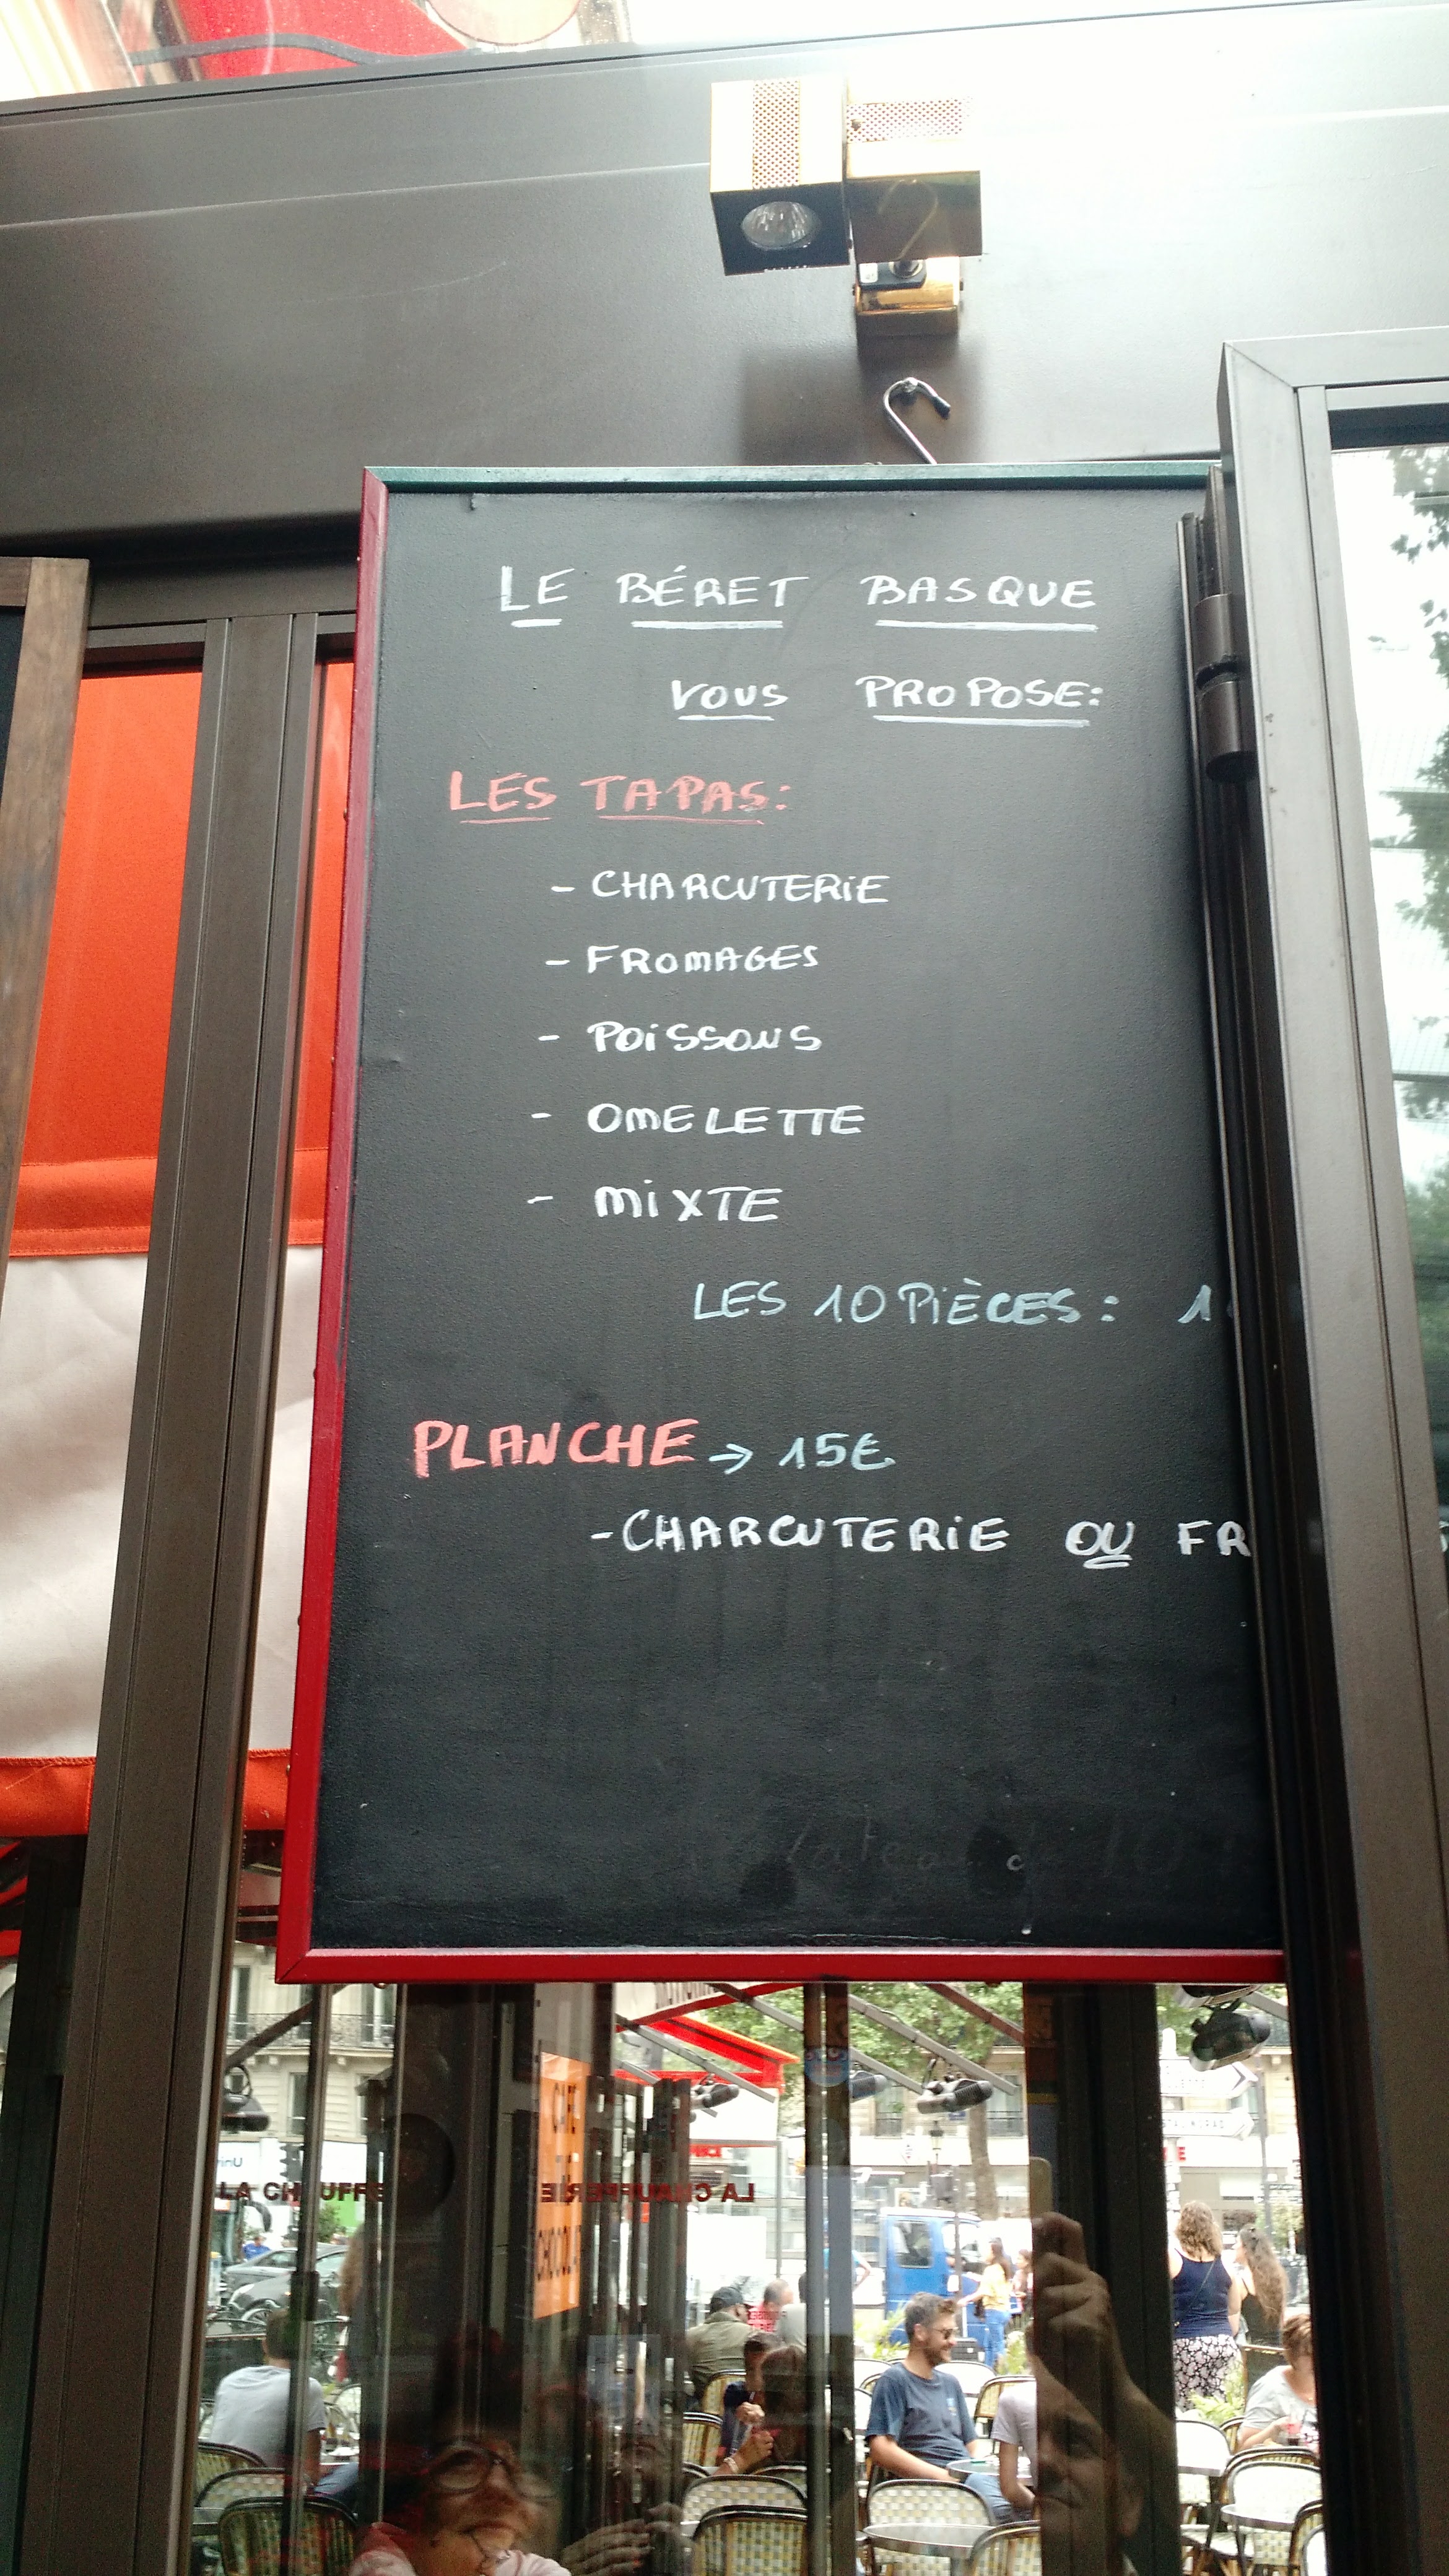 LE BÉRET BASQUE
VOUS PROPOSE:
LES TAPAS:
- CHARCUTERIE
- FROMAGES
- POISSONS
- OMELETTE
- MIXTE
LES 10 PIÈCES:
PLANCHE → 15€
- CHARCUTERIE OU FR
LA CHAUFFERIE